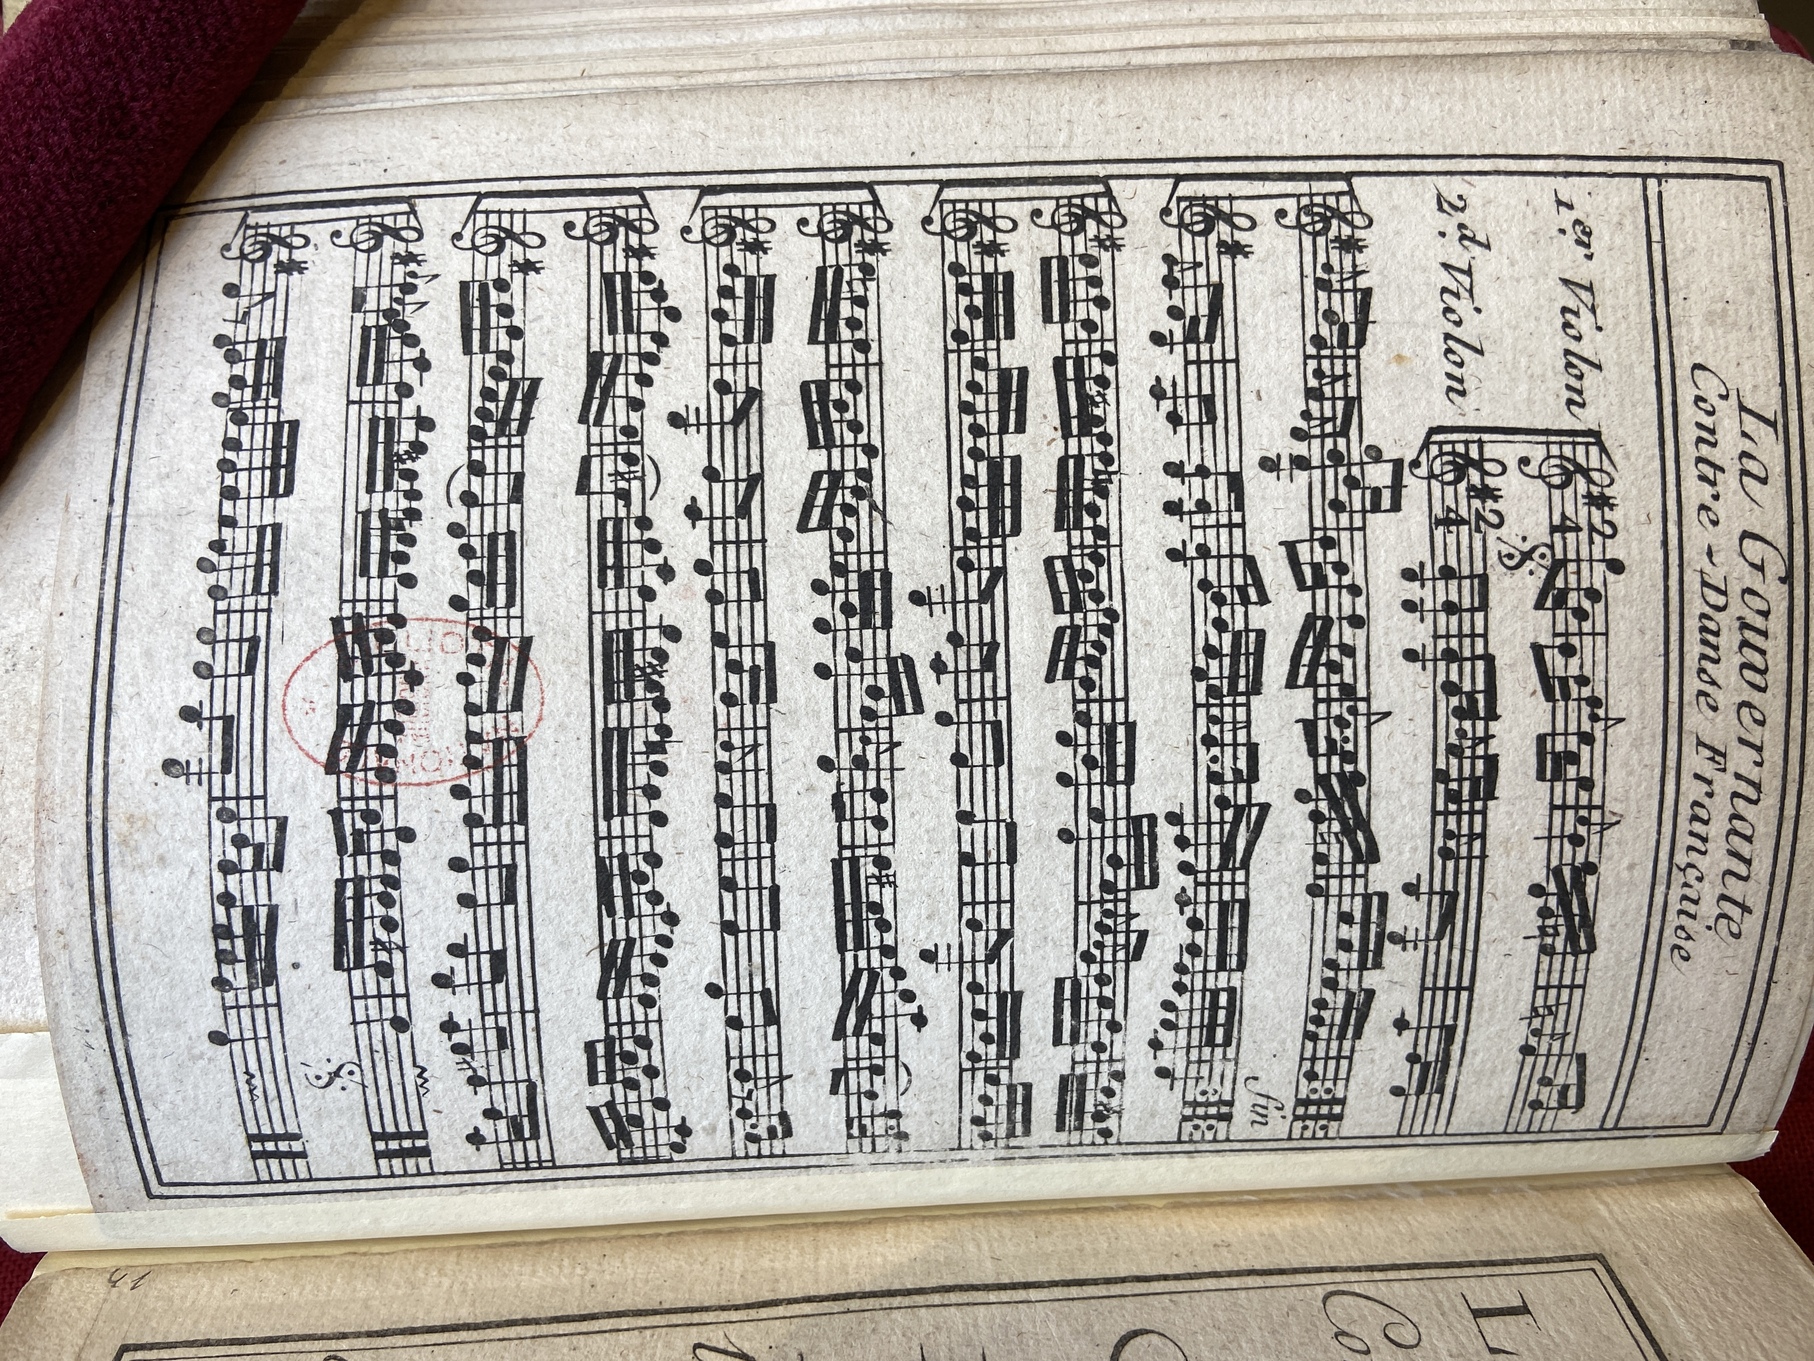 La Gouvernante
Contre-Danse Française
1er. Violon
2d. Violon
2
4
2
4
fin